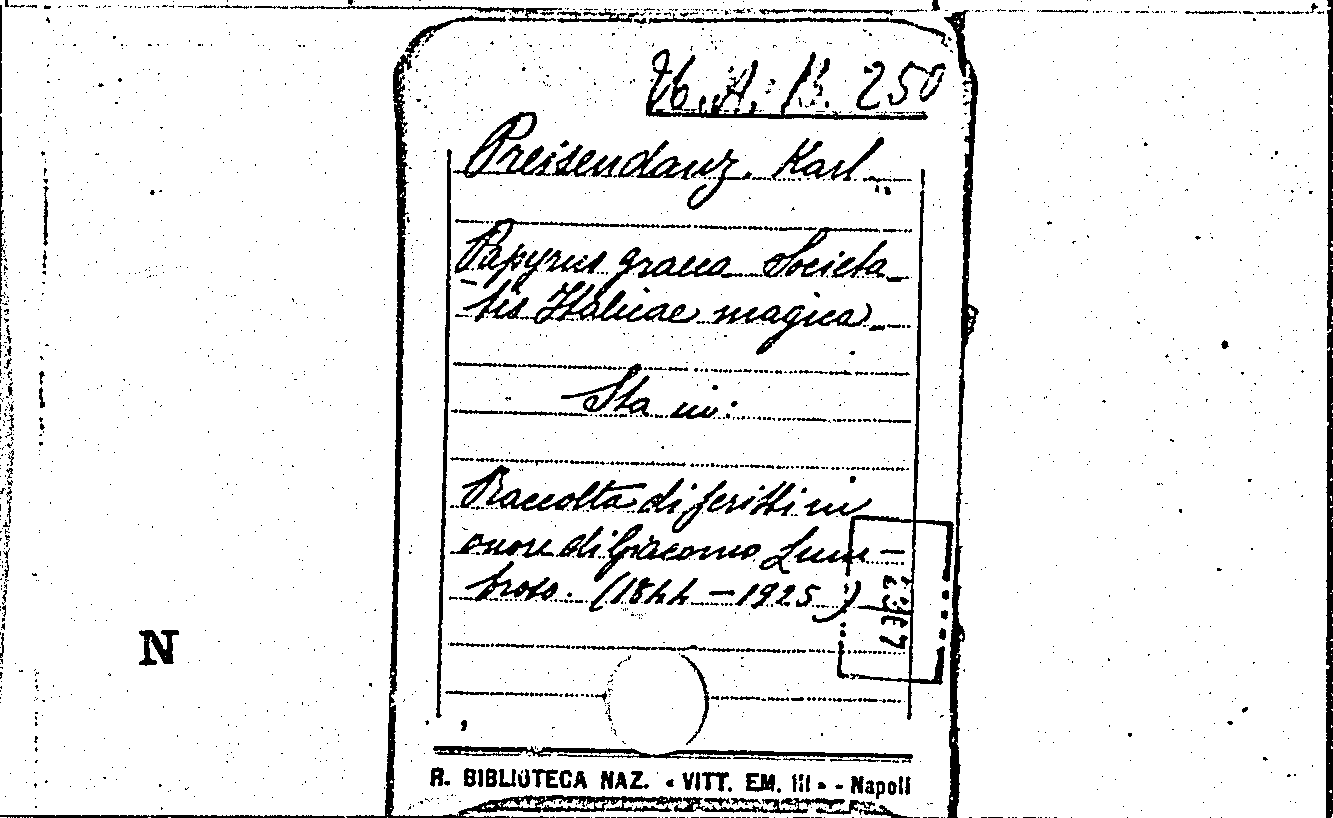 A. B. 250
Preisendanz. Karl
Papyrus graeca Societa_
tis Italicae magica_
Sta in:
Raccolta di scritti in
onore di Giacomo Lum-
broso. (1844-1925)
N
R. BIBLIOTECA NAZ. « VITT. EM. III » - Napoli